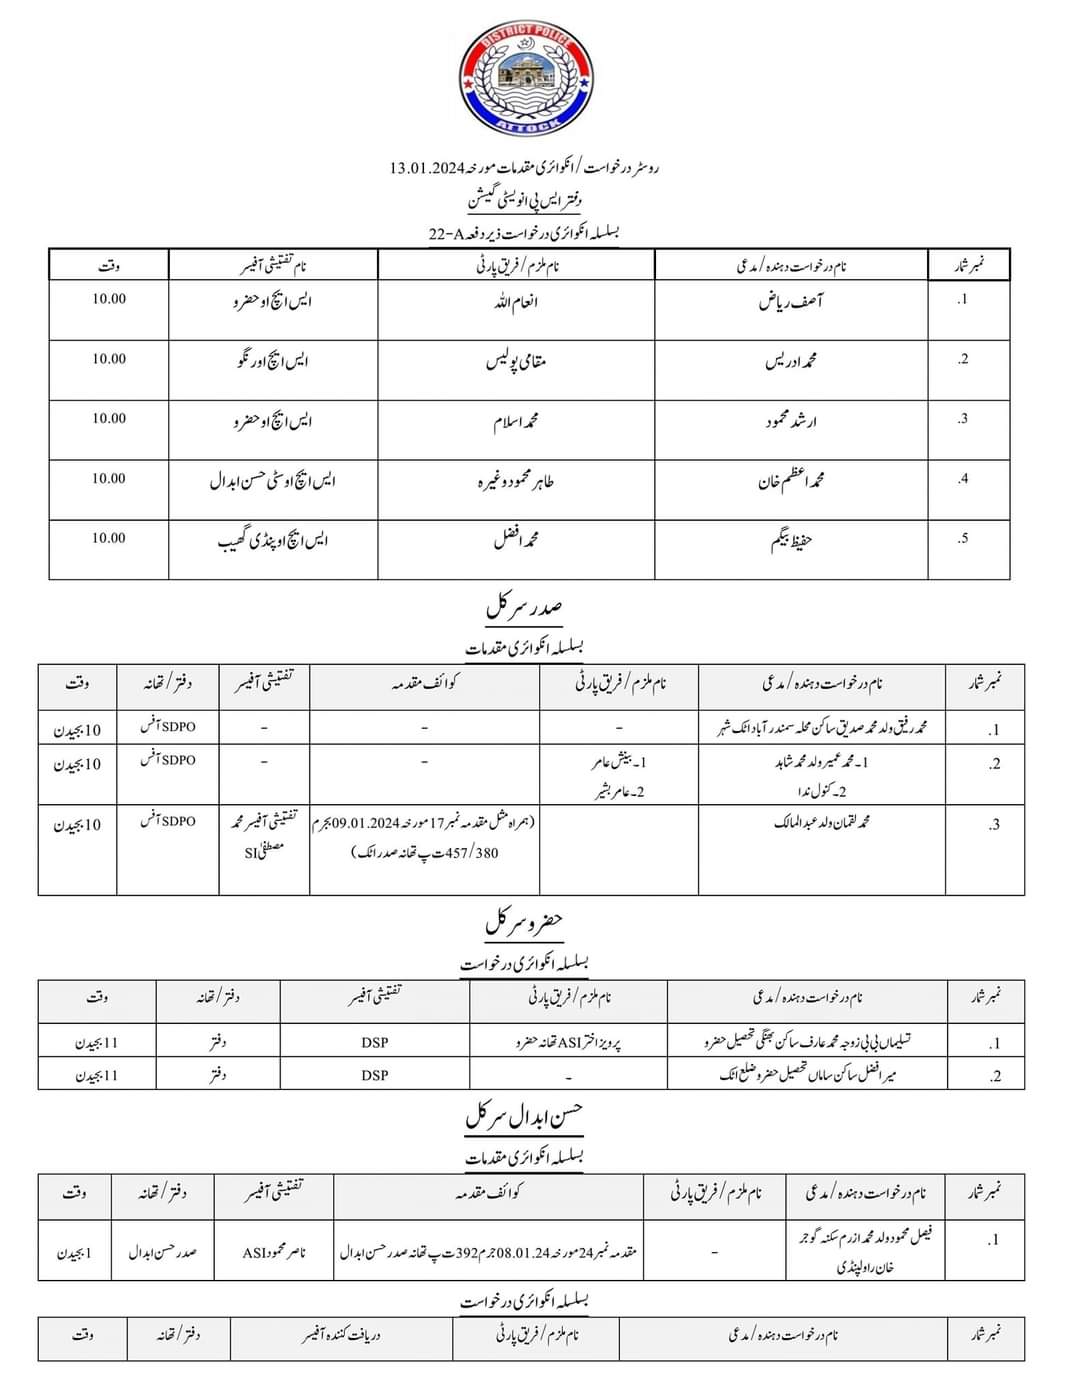 DISTRICT POLICE
ATTOCK
روسٹر درخواست / انکوائری مقدمات مورخہ 13.01.2024
دفتر ایس پی انویسٹی گیشن
بسلسلہ انکوائری درخواست زیر دفعہ 22-A
نمبر شمار نام درخواست دہندہ / مدعی نام ملزم / فریق پارٹی نام تفتیشی آفیسر وقت
1. آصف ریاض انعام اللہ ایس ایچ او حضرو 10.00
2. محمد ادریس مقامی پولیس ایس ایچ او رنگو 10.00
3. ارشد محمود محمد اسلام ایس ایچ او حضرو 10.00
4. محمد اعظم خان طاہر محمود وغیرہ ایس ایچ او سٹی حسن ابدال 10.00
5. حفیظ بیگم محمد افضل ایس ایچ او پنڈی گھیب 10.00
صدر سرکل
بسلسلہ انکوائری مقدمات
نمبر شمار نام درخواست دہندہ / مدعی نام ملزم / فریق پارٹی کوائف مقدمہ تفتیشی آفیسر دفتر / تھانہ وقت
1. محمد رفیق ولد محمد صدیق ساکن محلہ سمندر آباد اٹک شہر - - - SDPO آفس 10 بجیدن
2. 1۔ محمد عمیر ولد محمد شاہد 1۔ بینش عامر - - SDPO آفس 10 بجیدن
2۔ کنول ندا 2۔ عامر بشیر
3. محمد لقمان ولد عبدالمالک (ہمراہ مثل مقدمہ نمبر 17 مورخہ 09.01.2024 بجرم تفتیشی آفیسر محمد SDPO آفس 10 بجیدن
457/380 ت پ تھانہ صدر اٹک) مصطفیٰ SI
حضرو سرکل
بسلسلہ انکوائری درخواست
نمبر شمار نام درخواست دہندہ / مدعی نام ملزم / فریق پارٹی تفتیشی آفیسر دفتر / تھانہ وقت
1. تسلیماں بی بی زوجہ محمد عارف ساکن بھنگی تحصیل حضرو پرویز اختر ASI تھانہ حضرو DSP دفتر 11 بجیدن
2. میر افضل ساکن ساماں تحصیل حضرو ضلع اٹک - DSP دفتر 11 بجیدن
حسن ابدال سرکل
بسلسلہ انکوائری مقدمات
نمبر شمار نام درخواست دہندہ / مدعی نام ملزم / فریق پارٹی کوائف مقدمہ تفتیشی آفیسر دفتر / تھانہ وقت
1. فیصل محمود ولد محمد ازرم سکنہ گوجر - مقدمہ نمبر 24 مورخہ 08.01.24 جرم 392 ت پ تھانہ صدر حسن ابدال ناصر محمود ASI صدر حسن ابدال 1 بجیدن
خان راولپنڈی
بسلسلہ انکوائری درخواست
نمبر شمار نام درخواست دہندہ / مدعی نام ملزم / فریق پارٹی دریافت کنندہ آفیسر دفتر / تھانہ وقت